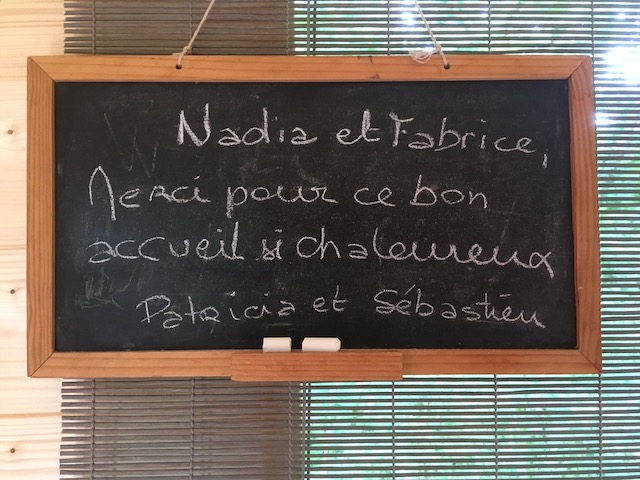 Nadia et Fabrice,
Merci pour ce bon
accueil si chaleureux
Patricia et Sébastien